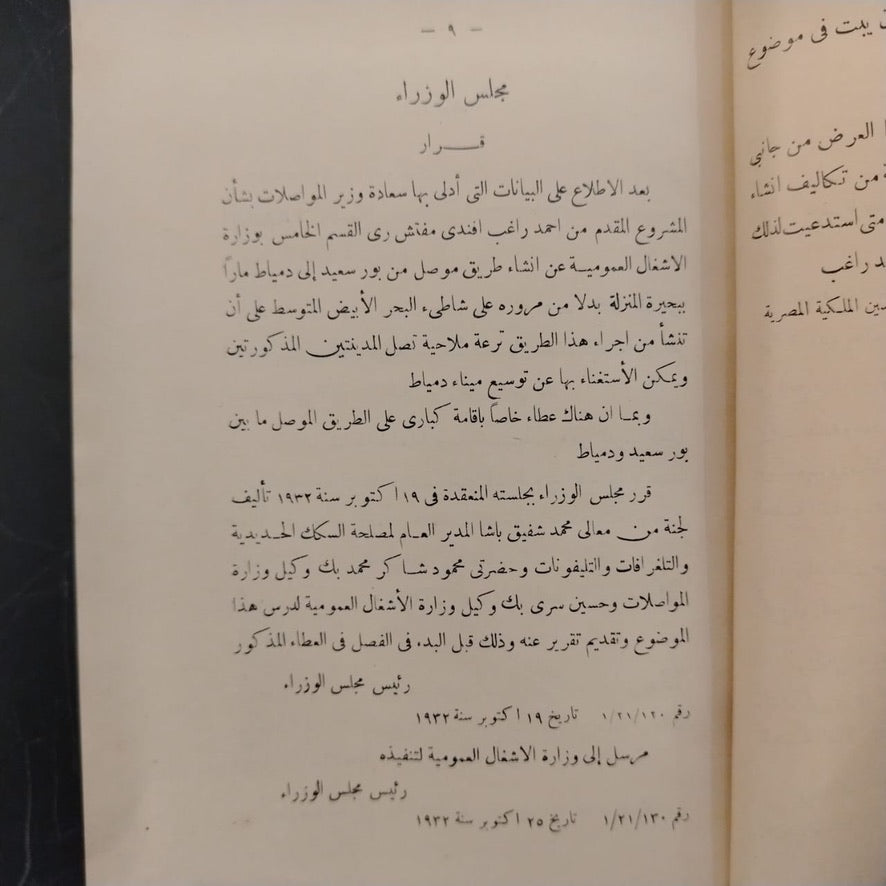 — ٩ —
مجلس الوزراء
قــــرار
بعد الاطلاع على البيانات التى أدلى بها سعادة وزير المواصلات بشأن
المشروع المقدم من احمد راغب افندى مفتش رى القسم الخامس بوزارة
الاشغال العموميـة عن انشاء طريق موصل من بور سعيد إلى دمياط ماراً
ببحيرة المنزلة بدلا من مروره على شاطىء البحر الأبيض المتوسط على أن
تنشأ من اجراء هذا الطريق ترعة ملاحية تصل المدينتين المذكورتين
ويمكن الأستغناء بها عن توسيع ميناء دمياط
وبمـا ان هناك عطاء خاصاً باقامة كبارى على الطريق الموصل ما بين
بور سعيد ودمياط
قرر مجلس الوزراء بجلسته المنعقدة فى ١٩ اكتوبر سنة ١٩٣٢ تأليف
لجنة من معالى محمد شفيق باشا المدير العـام لمصلحة السكك الحـديدية
والتلغرافات والتليفونات وحضرتى محمود شاكر محمد بك وكيل وزارة
المواصلات وحسين سرى بك وكيل وزارة الأشغال العمومية لدرس هذا
الموضوع وتقديم تقرير عنه وذلك قبل البدء فى الفصل فى العطاء المذكور
رئيس مجلس الوزراء
رقم ١/٢١/١٢٠ تاريخ ١٩ اكتوبر سنة ١٩٣٢
مرسل إلى وزارة الاشغال العمومية لتنفيذه
رئيس مجلس الوزراء
رقم ١/٢١/١٣٠ تاريخ ٢٥ اكتوبر سنة ١٩٣٢
يبت فى موضوع
العرض من جانبى
من تكاليف انشاء
متى استدعيت لذلك
راغب
الملكية المصرية